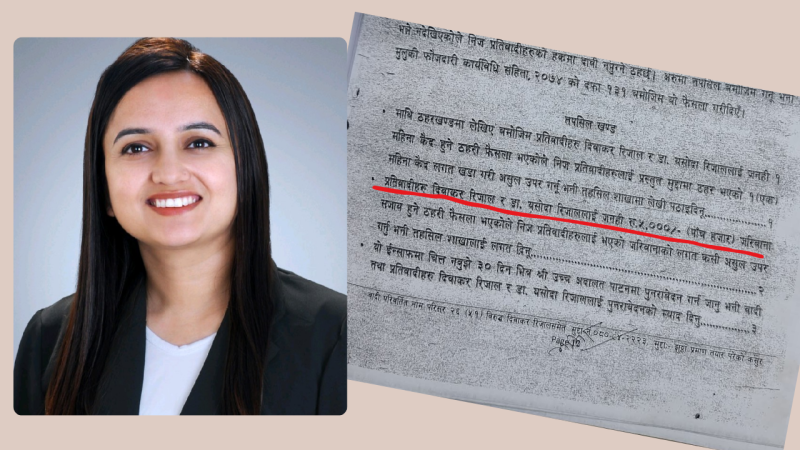 भन्ने नदेखिएकोले निज प्रतिवादीहरुको हकमा दावी नपुग्ने ठहर्छ। अरुमा तपसिल बमोजिम गर्नू भनी
मुलुकी फौजदारी कार्यविधि संहिता, २०७४ को दफा १३१ बमोजिम यो फैसला गरिदिएँ।
तपसिल खण्ड
माथि ठहरखण्डमा लेखिए बमोजिम प्रतिवादीहरु दिवाकर रिजाल र डा. यसोदा रिजाललाई जनही १
महिना कैद हुने ठहरी फैसला भएकोले निज प्रतिवादीहरुलाई प्रस्तुत मुद्दामा ठहर भएको १ (एक)
महिना कैद लगत खडा गरी असुल उपर गर्नू भनी तहसिल शाखामा लेखी पठाइदिनू १
प्रतिवादीहरु दिवाकर रिजाल र डा. यसोदा रिजाललाई जनही रु.५,०००/- (पाँच हजार) जरिवाना
हुने ठहरी फैसला भएकोले निज प्रतिवादीहरुलाई भएको जरिवानाको लगत कसी असुल उपर
गर्नु भनी तहसिल शाखालाई लगत दिनू २
यो ईन्साफमा चित्त नबुझे ३० दिन भित्र श्री उच्च अदालत पाटनमा पुनरावेदन गर्न जानु भनी वादी
तथा प्रतिवादीहरु दिवाकर रिजाल र डा. यसोदा रिजाललाई पुनरावेदनको म्याद दिनू ३
वादी परिवर्तित नाम परिसर २६ (५१) विरुद्ध दिवाकर रिजालसमेत मुद्दा झुट्टा प्रमाण तयार गरेको कसुर
Page